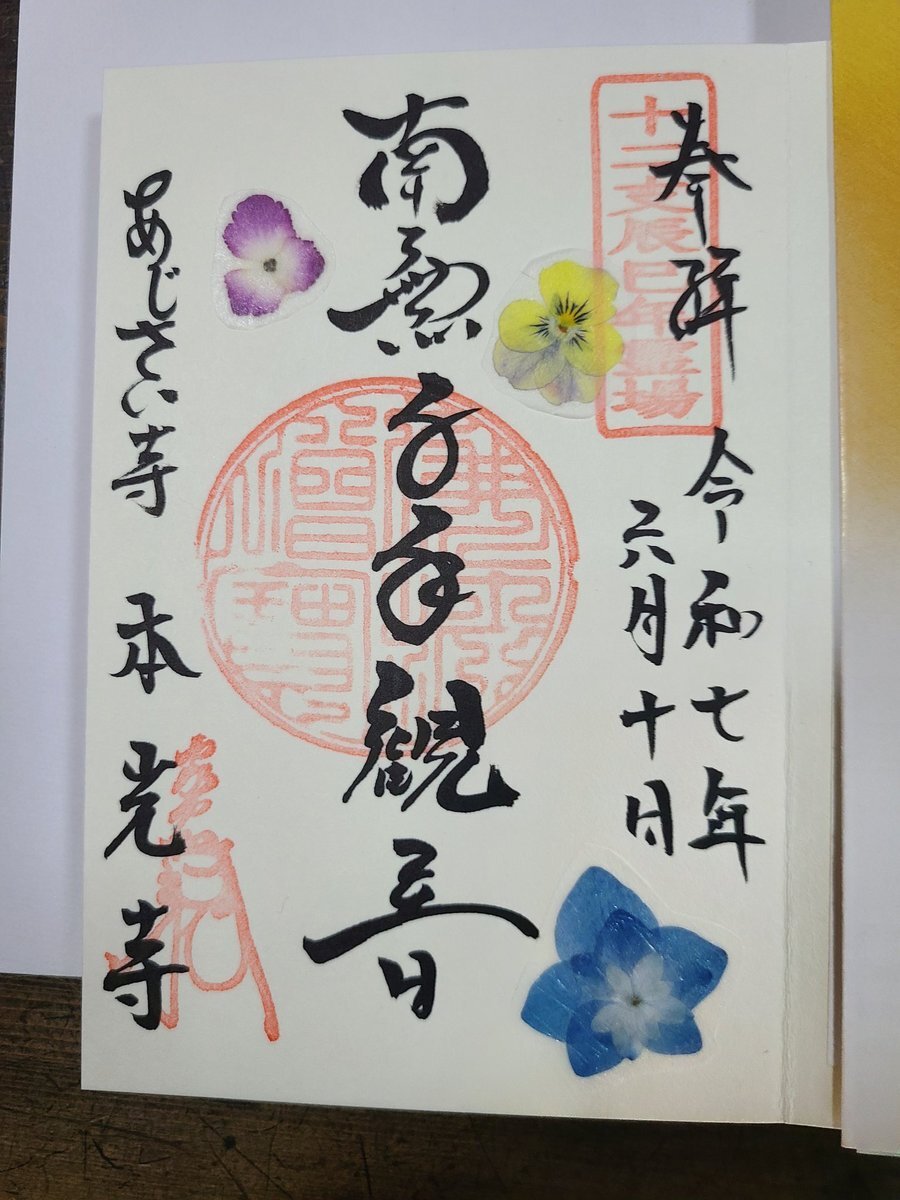 奉拝
十二支辰巳年霊場
令和七年
六月十日
南無千手観音
あじさい寺 本光寺